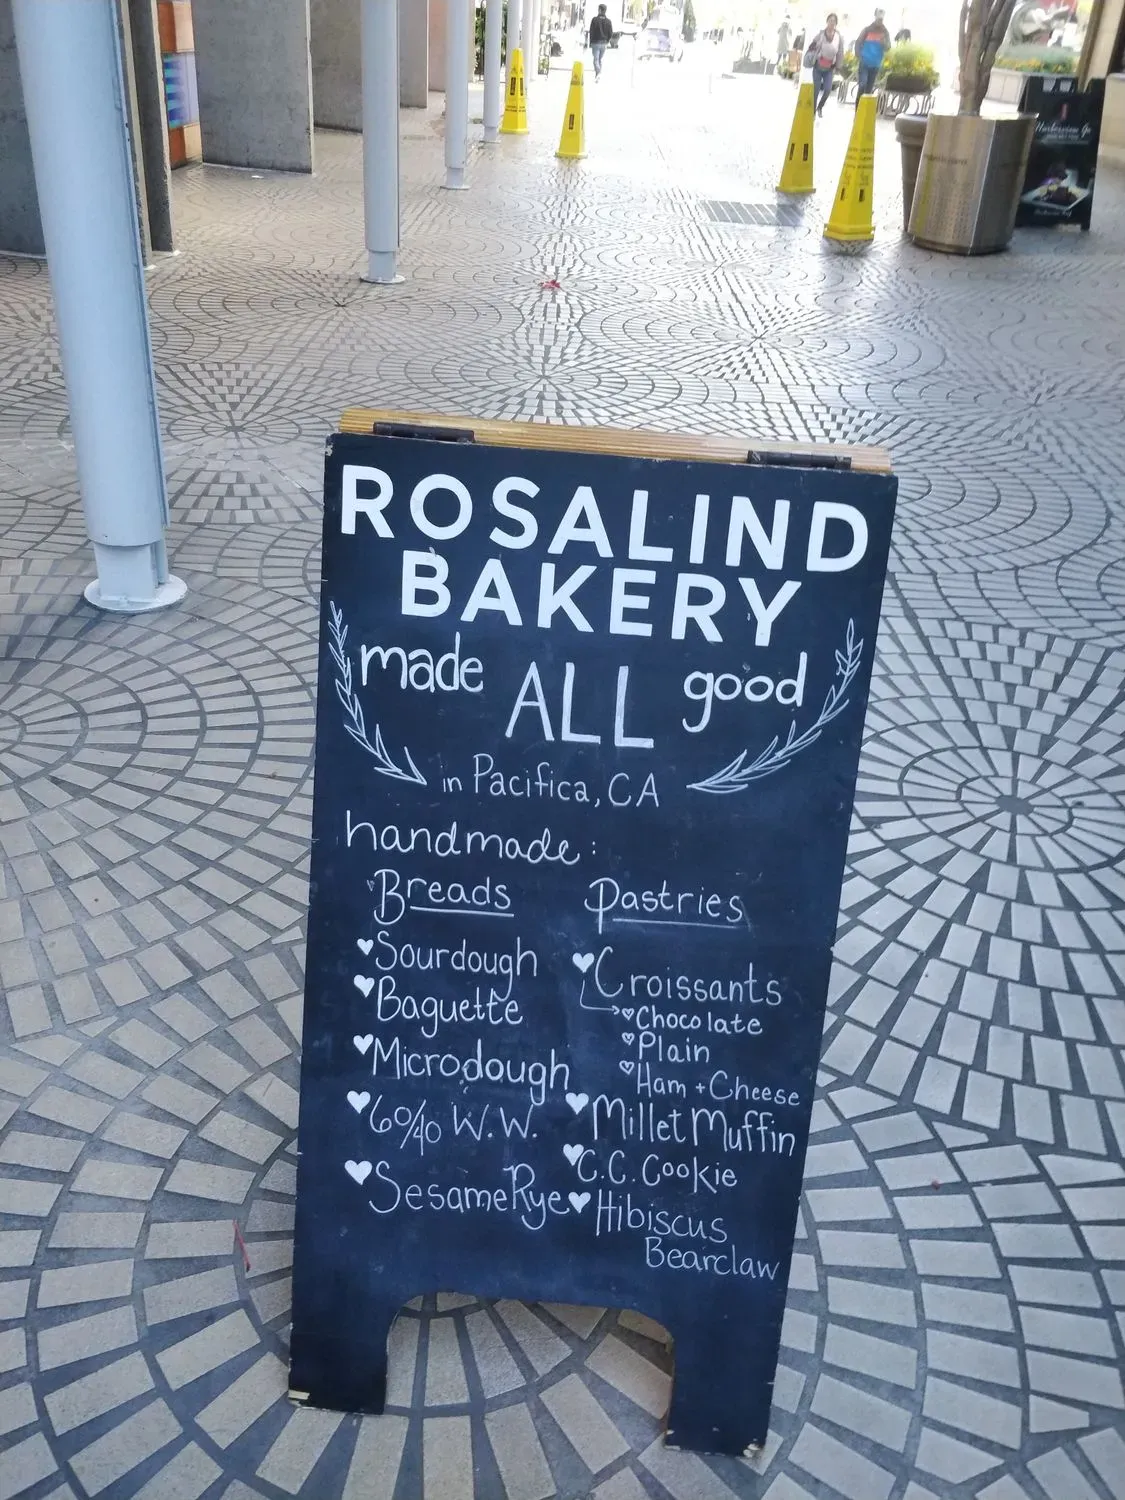 ROSALIND
BAKERY
made ALL good
in Pacifica, CA
handmade:
Breads
Sourdough
Baguette
Microdough
60/40 W.W.
Sesame Rye
Pastries
Croissants
Chocolate
Plain
Ham + Cheese
Millet Muffin
C.C. Cookie
Hibiscus
Bearclaw